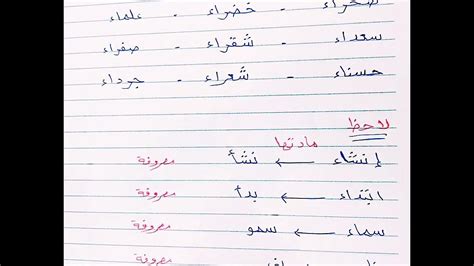 صحراء - خضراء - علماء
سعداء - شقراء - صفراء
حسناء - شعراء - جرداء
لاحظ
مادتها
إنشاء ← نشأ مصروفة
ابتداء ← بدأ مصروفة
سماء ← سمو مصروفة